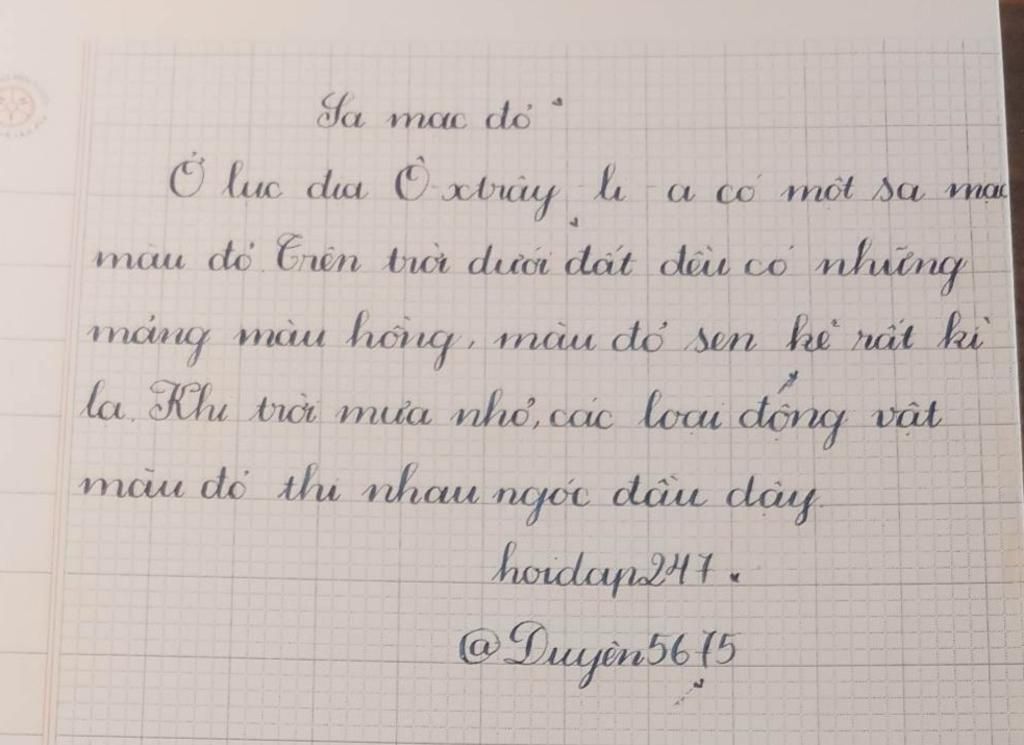 Sa mạc đỏ
Ở lục địa Ô-xtrây-li-a có một sa mạc
màu đỏ. Trên trời dưới đất đều có những
mảng màu hồng, màu đỏ sen kẽ rất kì
lạ. Khi trời mưa nhỏ, các loại động vật
màu đỏ thi nhau ngóc đầu dậy.
hoidap247.
@Duyên5675